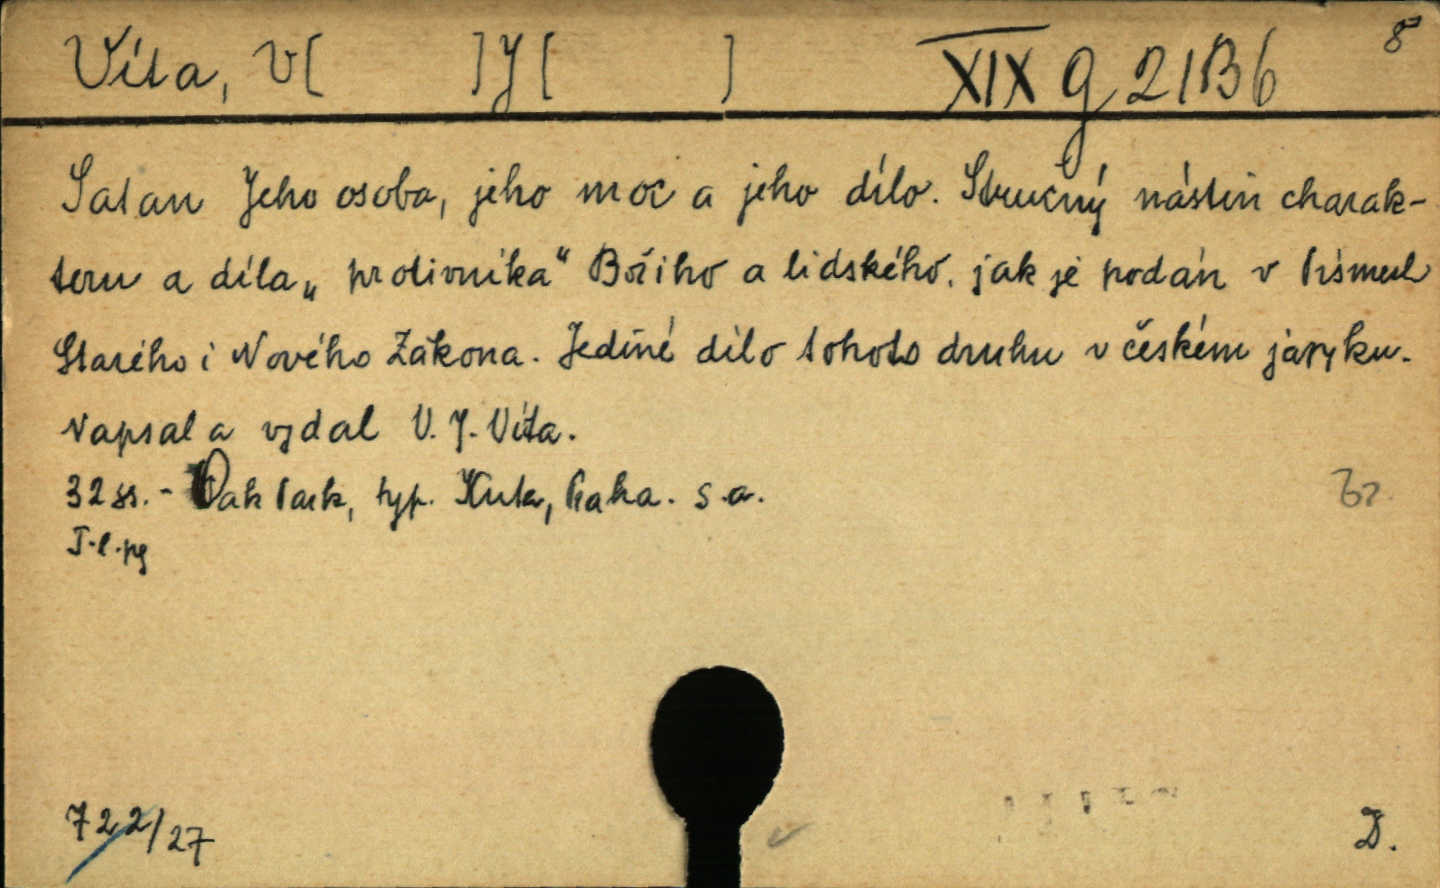 Víta, V[ ]J[ ] XIX g 21B6 8°
Satan Jeho osoba, jeho moc a jeho dílo. Stručný nástin charak-
teru a díla „protivníka“ Božího a lidského, jak je podán v Písmech
Starého i Nového Zákona. Jediné dílo tohoto druhu v českém jazyku.
Napsal a vydal V. J. Víta.
32 ss. - Oak Park, typ. Kuta, Praha. s.a.
T.l.pg
722/27 D.